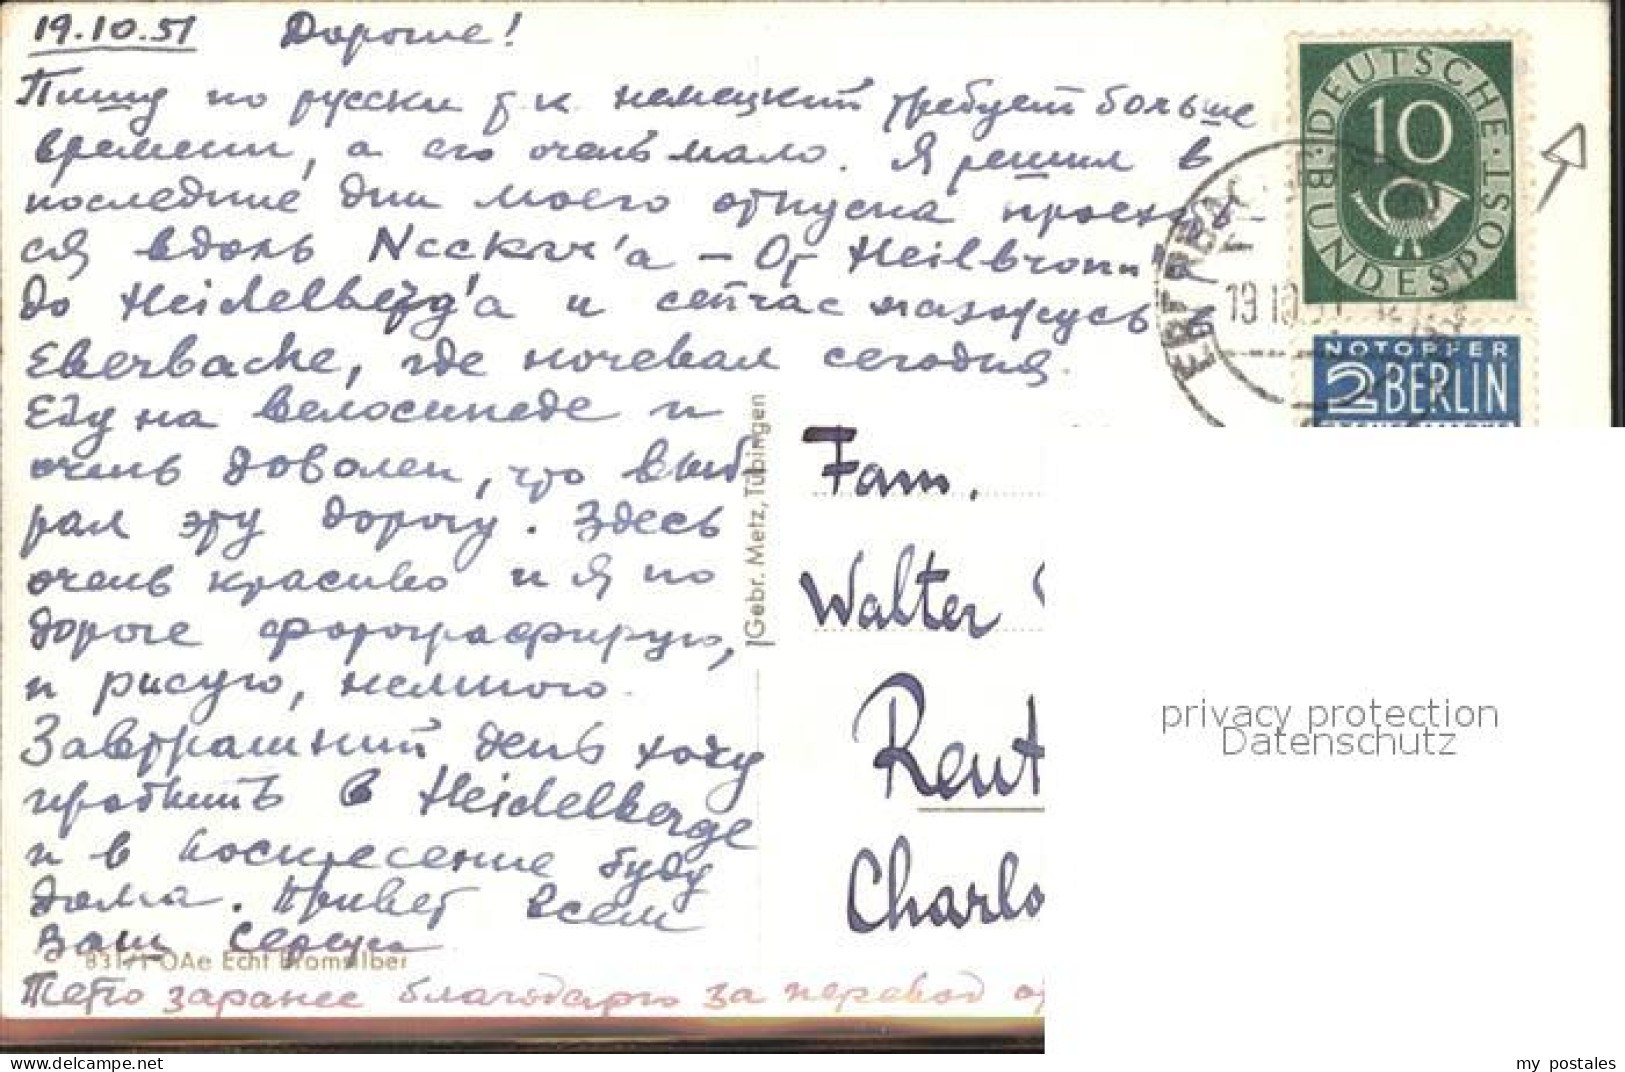 19.10.51 Дорогие!
Пишу по русски т.к. немецкий требует больше
времени, а его очень мало. Я решил в
последние дни моего отпуска проехать-
ся вдоль Neckar'a - От Heilbronn'a
до Heidelberg'a и сейчас нахожусь в
Eberbache, где ночевал сегодня.
Еду на велосипеде и
очень доволен, что выб-
рал эту дорогу. Здесь
очень красиво и я по
дороге фотографирую,
и рисую, немного.
Завтрашний день хочу
пробыть в Heidelberge
и в воскресение буду
дома. Привет всем
Ваш Сережа
831/1 OAe Echt Bromsilber
Тетю заранее благодарю за перевод
Gebr. Metz, Tübingen
DEUTSCHE BUNDESPOST
10
NOTOPFER
2 BERLIN
EBERBACH
19.10.51
Fam.
Walter
Reut
Charlo
privacy protection
Datenschutz
my postales